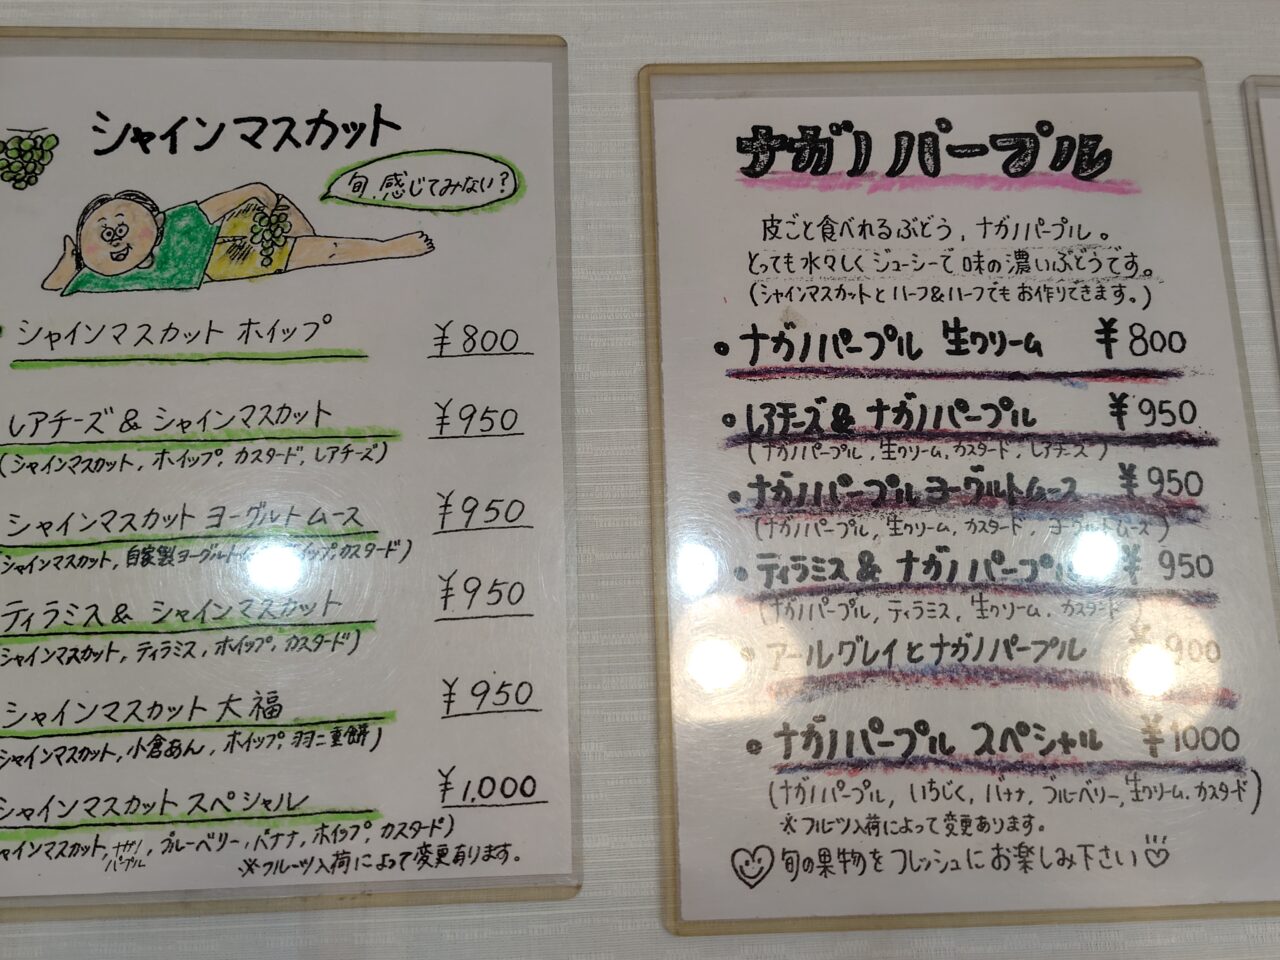 シャインマスカット
旬、感じてみない?
シャインマスカット ホイップ ¥800
レアチーズ & シャインマスカット ¥950
(シャインマスカット, ホイップ, カスタード, レアチーズ)
シャインマスカット ヨーグルトムース ¥950
シャインマスカット, 自家製ヨーグルト カスタード)
ティラミス & シャインマスカット ¥950
シャインマスカット, ティラミス, ホイップ, カスタード)
シャインマスカット 大福 ¥950
シャインマスカット, 小倉あん, ホイップ, 羽二重餅)
シャインマスカット スペシャル ¥1,000
ャインマスカット, ナガノパープル, ブルーベリー, バナナ, ホイップ, カスタード)
※フルーツ入荷によって変更あります。
ナガノパープル
皮ごと食べれるぶどう、ナガノパープル。
とっても水々しくジューシーで味の濃いぶどうです。
(シャインマスカットとハーフ&ハーフでもお作りできます。)
• ナガノパープル 生クリーム ¥800
• レアチーズ & ナガノパープル ¥950
(ナガノパープル, 生クリーム, カスタード, レアチーズ)
• ナガノパープルヨーグルトムース ¥950
(ナガノパープル, 生クリーム, カスタード, ヨーグルトムース)
• ティラミス & ナガノパープル ¥950
(ナガノパープル, ティラミス, 生クリーム, カスタード)
アールグレイとナガノパープル ¥900
• ナガノパープル スペシャル ¥1000
(ナガノパープル, いちじく, バナナ, ブルーベリー, 生クリーム, カスタード)
※フルーツ入荷によって変更あります。
旬の果物をフレッシュにお楽しみ下さい♡